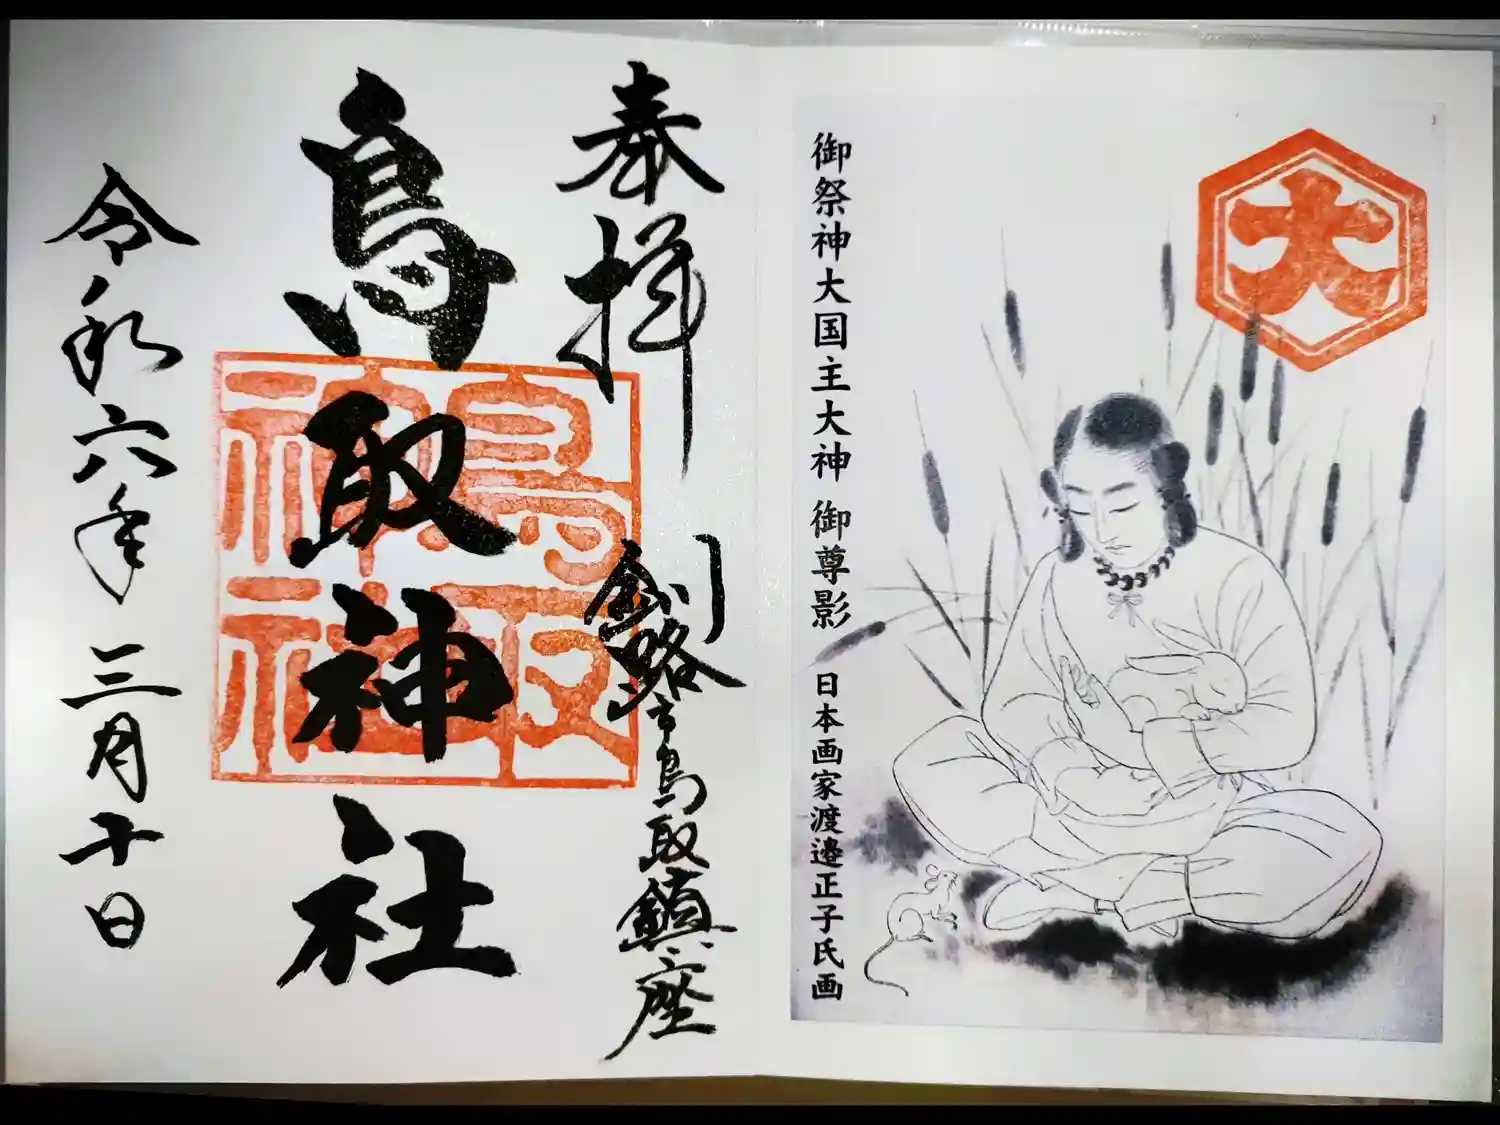 大
御祭神大国主大神 御尊影 日本画家渡邉正子氏画
奉拝
釧路市鳥取鎮座
鳥取神社
鳥取神社
令和六年 三月十日